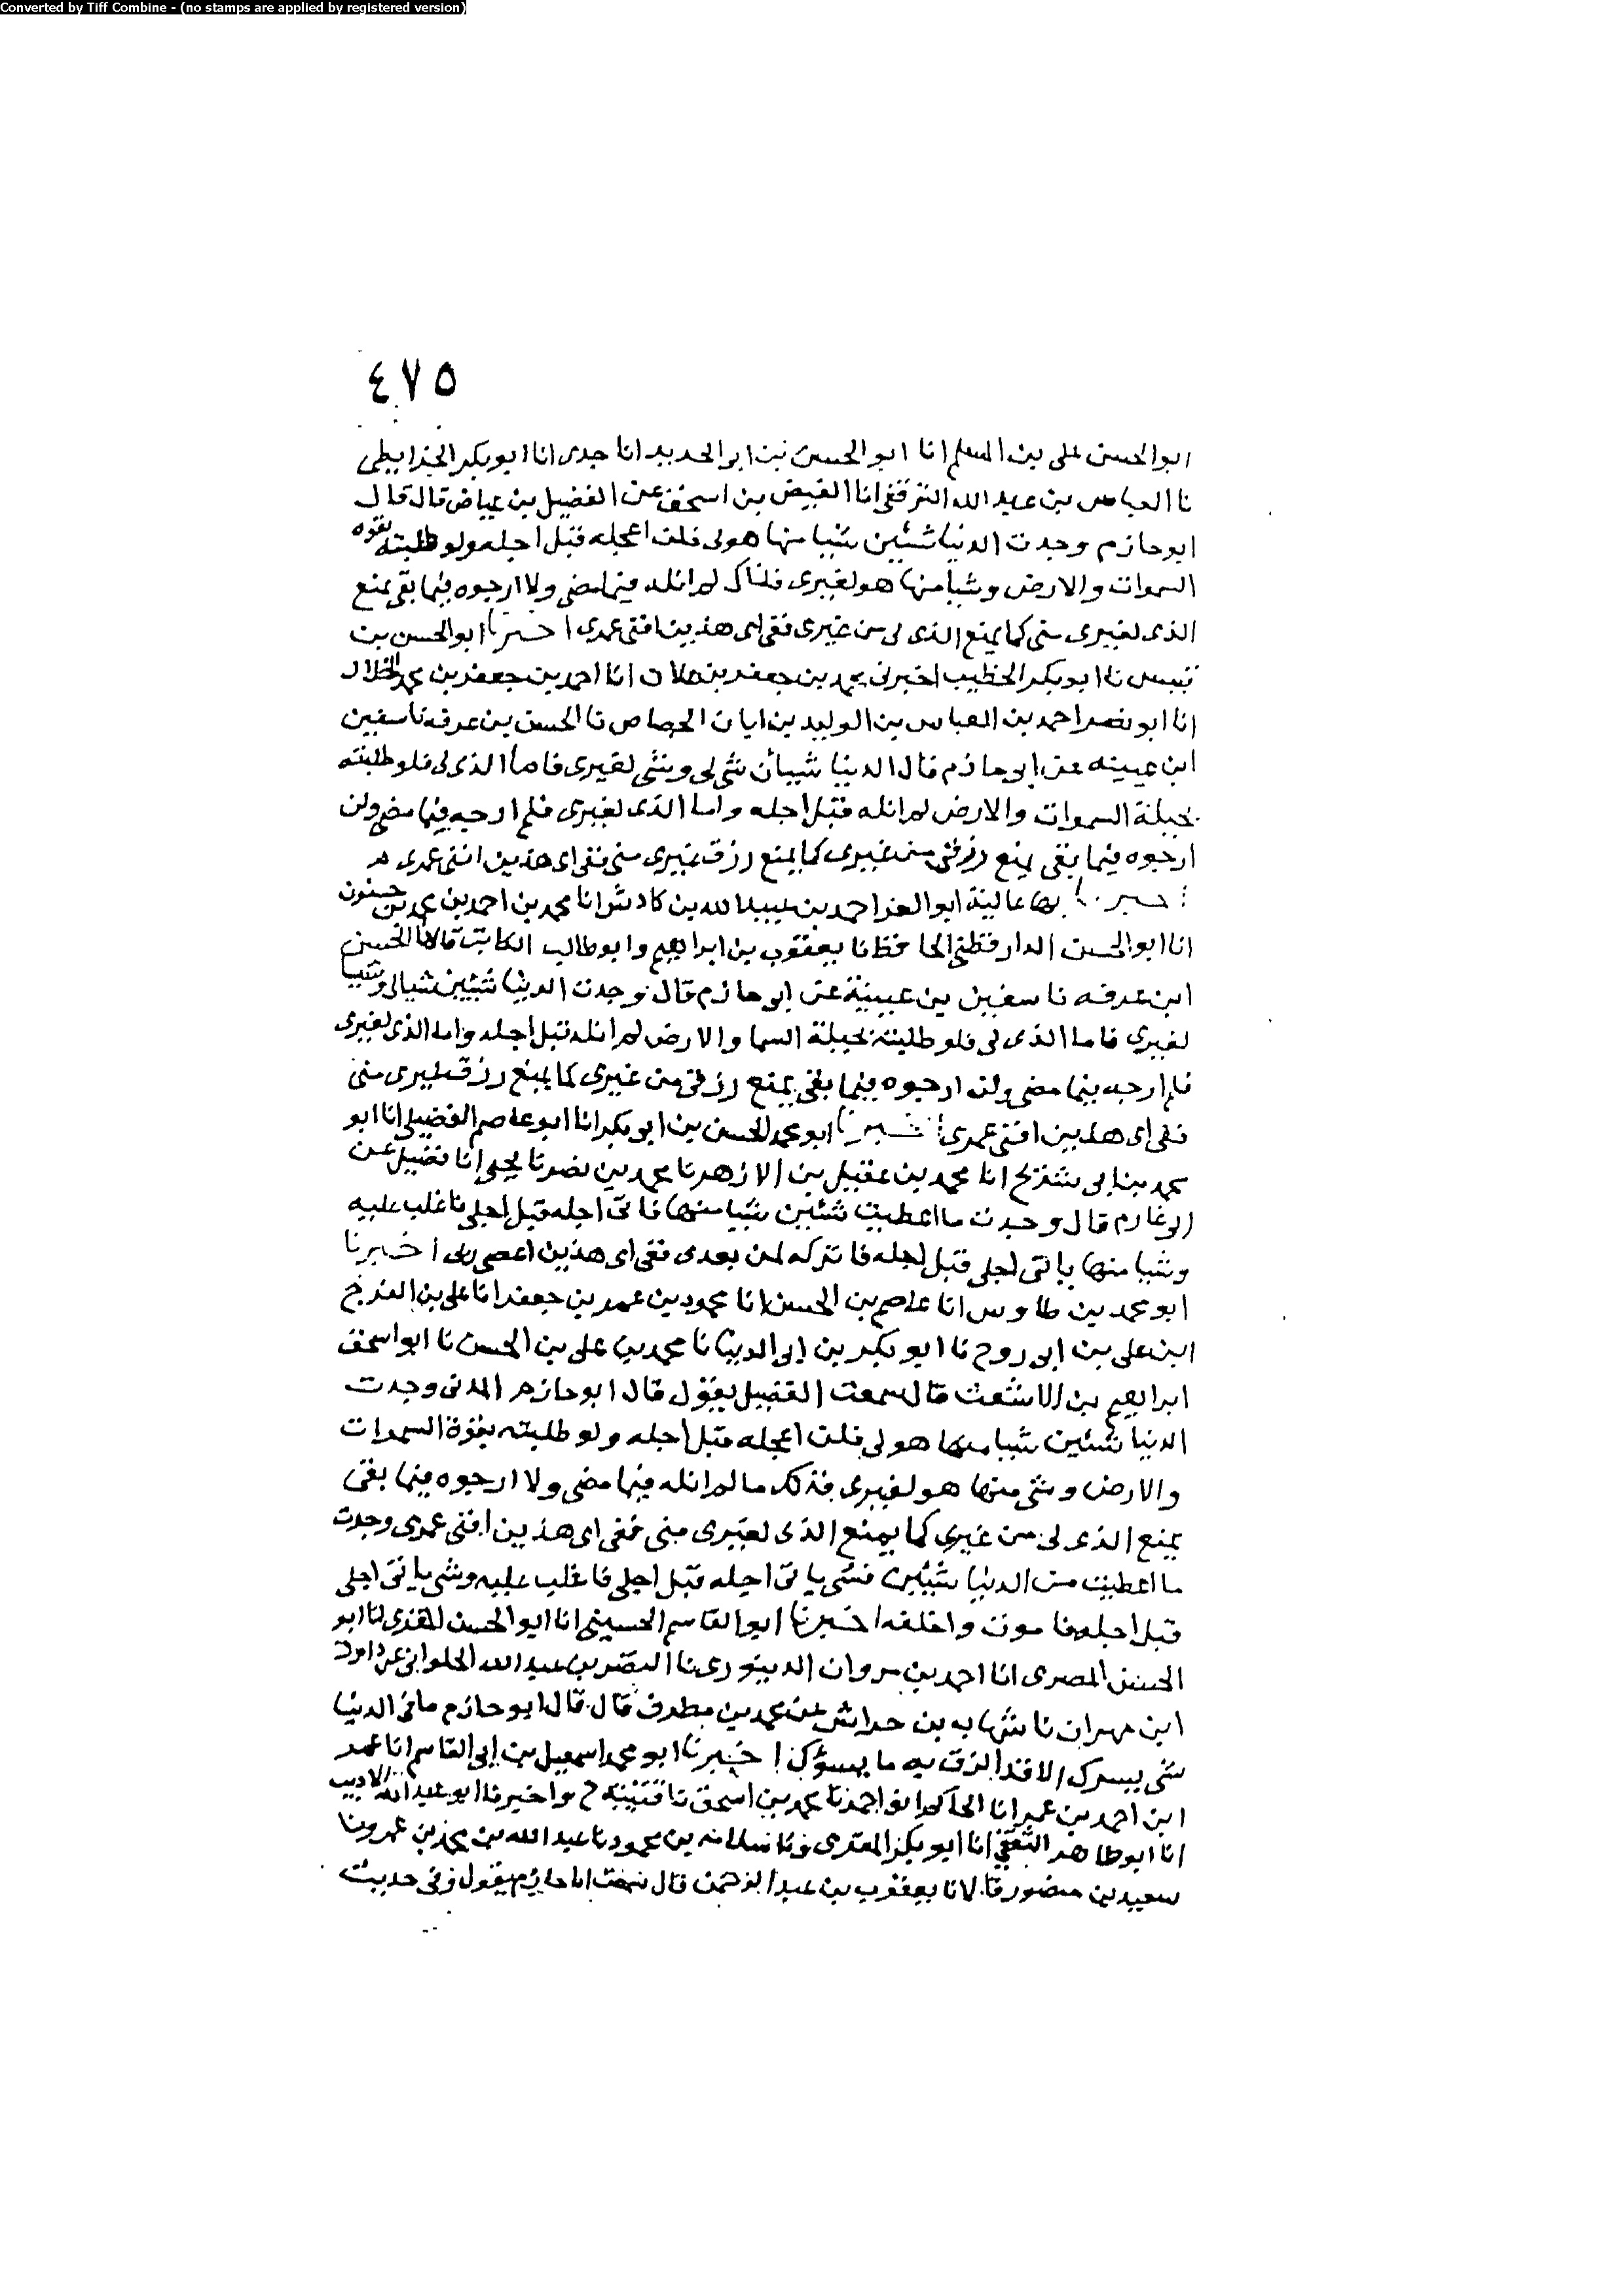 Converted by Tiff Combine - (no stamps are applied by registered version)
٤٧٥
ابو الحسن على بن المسلم انا ابو الحسن بن ابى الحديد انا جدى انا ابو بكر الخرايطى
نا العباس بن عبد الله الترقفى انا الفيض بن اسحق عن الفضيل بن عياض قال قال
ابو حازم وجدت الدنيا شئين شيا منها هو لى فلن اعجله قبل اجله ولو طلبته بقوه
السموات والارض وشيا منها هو لغيرى فذاك لم انله فيما مضى ولا ارجوه فيما بقى يمنع
الذى لغيرى منى كما يمنع الذى لى من غيرى ففى اى هذين افنى عمرى اخبرنا ابو الحسن بن
قبيس نا ابو بكر الخطيب اخبرنى محمد بن جعفر بن علان انا احمد بن جعفر بن محمد الخلال
انا ابو نصر احمد بن العباس بن الوليد بن ابان الجصاص نا الحسن بن عرفه نا سفين
ابن عيينه عن ابى حازم قال الدنيا شيان شى لى وشى لغيرى فاما الذى لى فلو طلبته
بحيلة السموات والارض لم انله قبل اجله واما الذى لغيرى فلم ارجه فيما مضى ولن
ارجوه فيما بقى يمنع رزقى من غيرى كما يمنع رزق غيرى منى ففى اى هذين افنى عمرى
اخبرنا بها عالية ابو العز احمد بن عبيد الله بن كادش انا محمد بن احمد بن محمد بن حسنون
انا ابو الحسن الدارقطنى الحافظ نا يعقوب بن ابراهيم وابو طالب الكاتب قالا نا الحسن
ابن عرفه نا سفين بن عيينة عن ابى حازم قال وجدت الدنيا شيئين شيا لى وشيا
لغيري فاما الذى لى فلو طلبته بحيلة السما والارض لم انله قبل اجله واما الذى لغيرى
فلم ارجه فيما مضى ولن ارجوه فيما بقى يمنع رزقى من غيرى كما يمنع رزق غيرى منى
ففى اى هذين افنى عمرى اخبرنا ابو محمد الحسن بن ابى بكر انا ابو عاصم الفضيلى انا ابو
محمد بن ابى شريح انا محمد بن عقيل بن الازهر نا محمد بن نصر نا يحيى انا فضيل عن
ابى حازم قال وجدت ما اعطيت شئين شيا منها ياتى اجله قبل اجلى فاغلب عليه
وشيا منها ياتى اجلى قبل اجله فاتركه لمن بعدى ففى اى هذين اعصى ربى اخبرنا
ابو محمد بن طاوس انا عاصم بن الحسن انا محمود بن عمر بن جعفر انا على بن الفرج
ابن على بن ابى روح نا ابو بكر بن ابى الدنيا نا محمد بن على بن الحسن نا ابو اسحق
ابراهيم بن الاشعث قال سمعت الفضيل يقول قال ابو حازم المدنى وجدت
الدنيا شئين شيا منها هو لى فلن اعجله قبل اجله ولو طلبته بقوة السموات
والارض وشى منها هو لغيرى فذلك ما لم انله فيما مضى ولا ارجوه فيما بقى
يمنع الذى لى من غيرى كما يمنع الذى لغيرى منى ففى اى هذين افنى عمرى وجدت
ما اعطيت من الدنيا شيئين فشى ياتى اجله قبل اجلى فاغلب عليه وشى ياتى اجلى
قبل اجله فاموت واخلفه اخبرنا ابو القاسم الحسينى انا ابو الحسن المقرى انا ابو
الحسن المصرى انا احمد بن مروان الدينورى نا النضر بن عبد الله الحلوانى عن داود
ابن مهران نا شهاب بن خراش عن محمد بن مطرف قال قال ابو حازم ما فى الدنيا
شى يسرك الا قد الزق به ما يسؤك اخبرنا ابو محمد اسمعيل بن ابى القاسم انا عمر
ابن احمد بن عمر انا الحاكم ابو احمد نا محمد بن اسحق نا قتيبة ح واخبرنا ابو عبد الله الاديب
انا ابو طاهر الثقفى انا ابو بكر المقرى نا سلامه بن محمود نا عبد الله بن محمد بن عمرو نا
سعيد بن منصور قالا نا يعقوب بن عبد الرحمن قال سمعت ابا حازم يقول وفى حديث